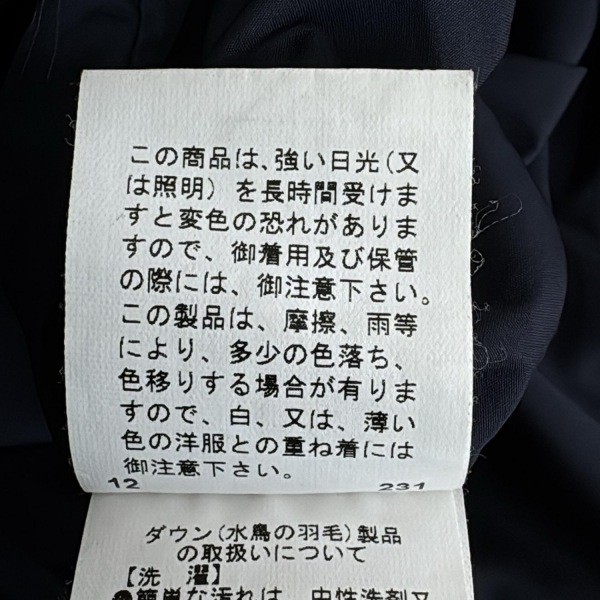 この商品は、強い日光(又
は照明) を長時間受けま
すと変色の恐れがありま
すので、御着用及び保管
の際には、御注意下さい。
この製品は、摩擦、雨等
により、多少の色落ち、
色移りする場合が有りま
すので、白、又は、薄い
色の洋服との重ね着には
御注意下さい。
12 231
ダウン(水鳥の羽毛)製品
の取扱いについて
【洗 濯】
●簡単な汚れは、中性洗剤又